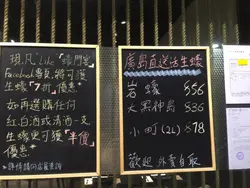 現凡 Like「蠔門宴」
Facebook專頁，將可獲
生蠔「7折」優惠*
如再選購任何
紅,白酒或清酒一支
生蠔更可獲「半價」
優惠*
*詳情請向店員查詢
廣島直送活生蠔
岩蠔 $56
大黑神島 $36
小町 (2L) $78
歡迎 外賣自取